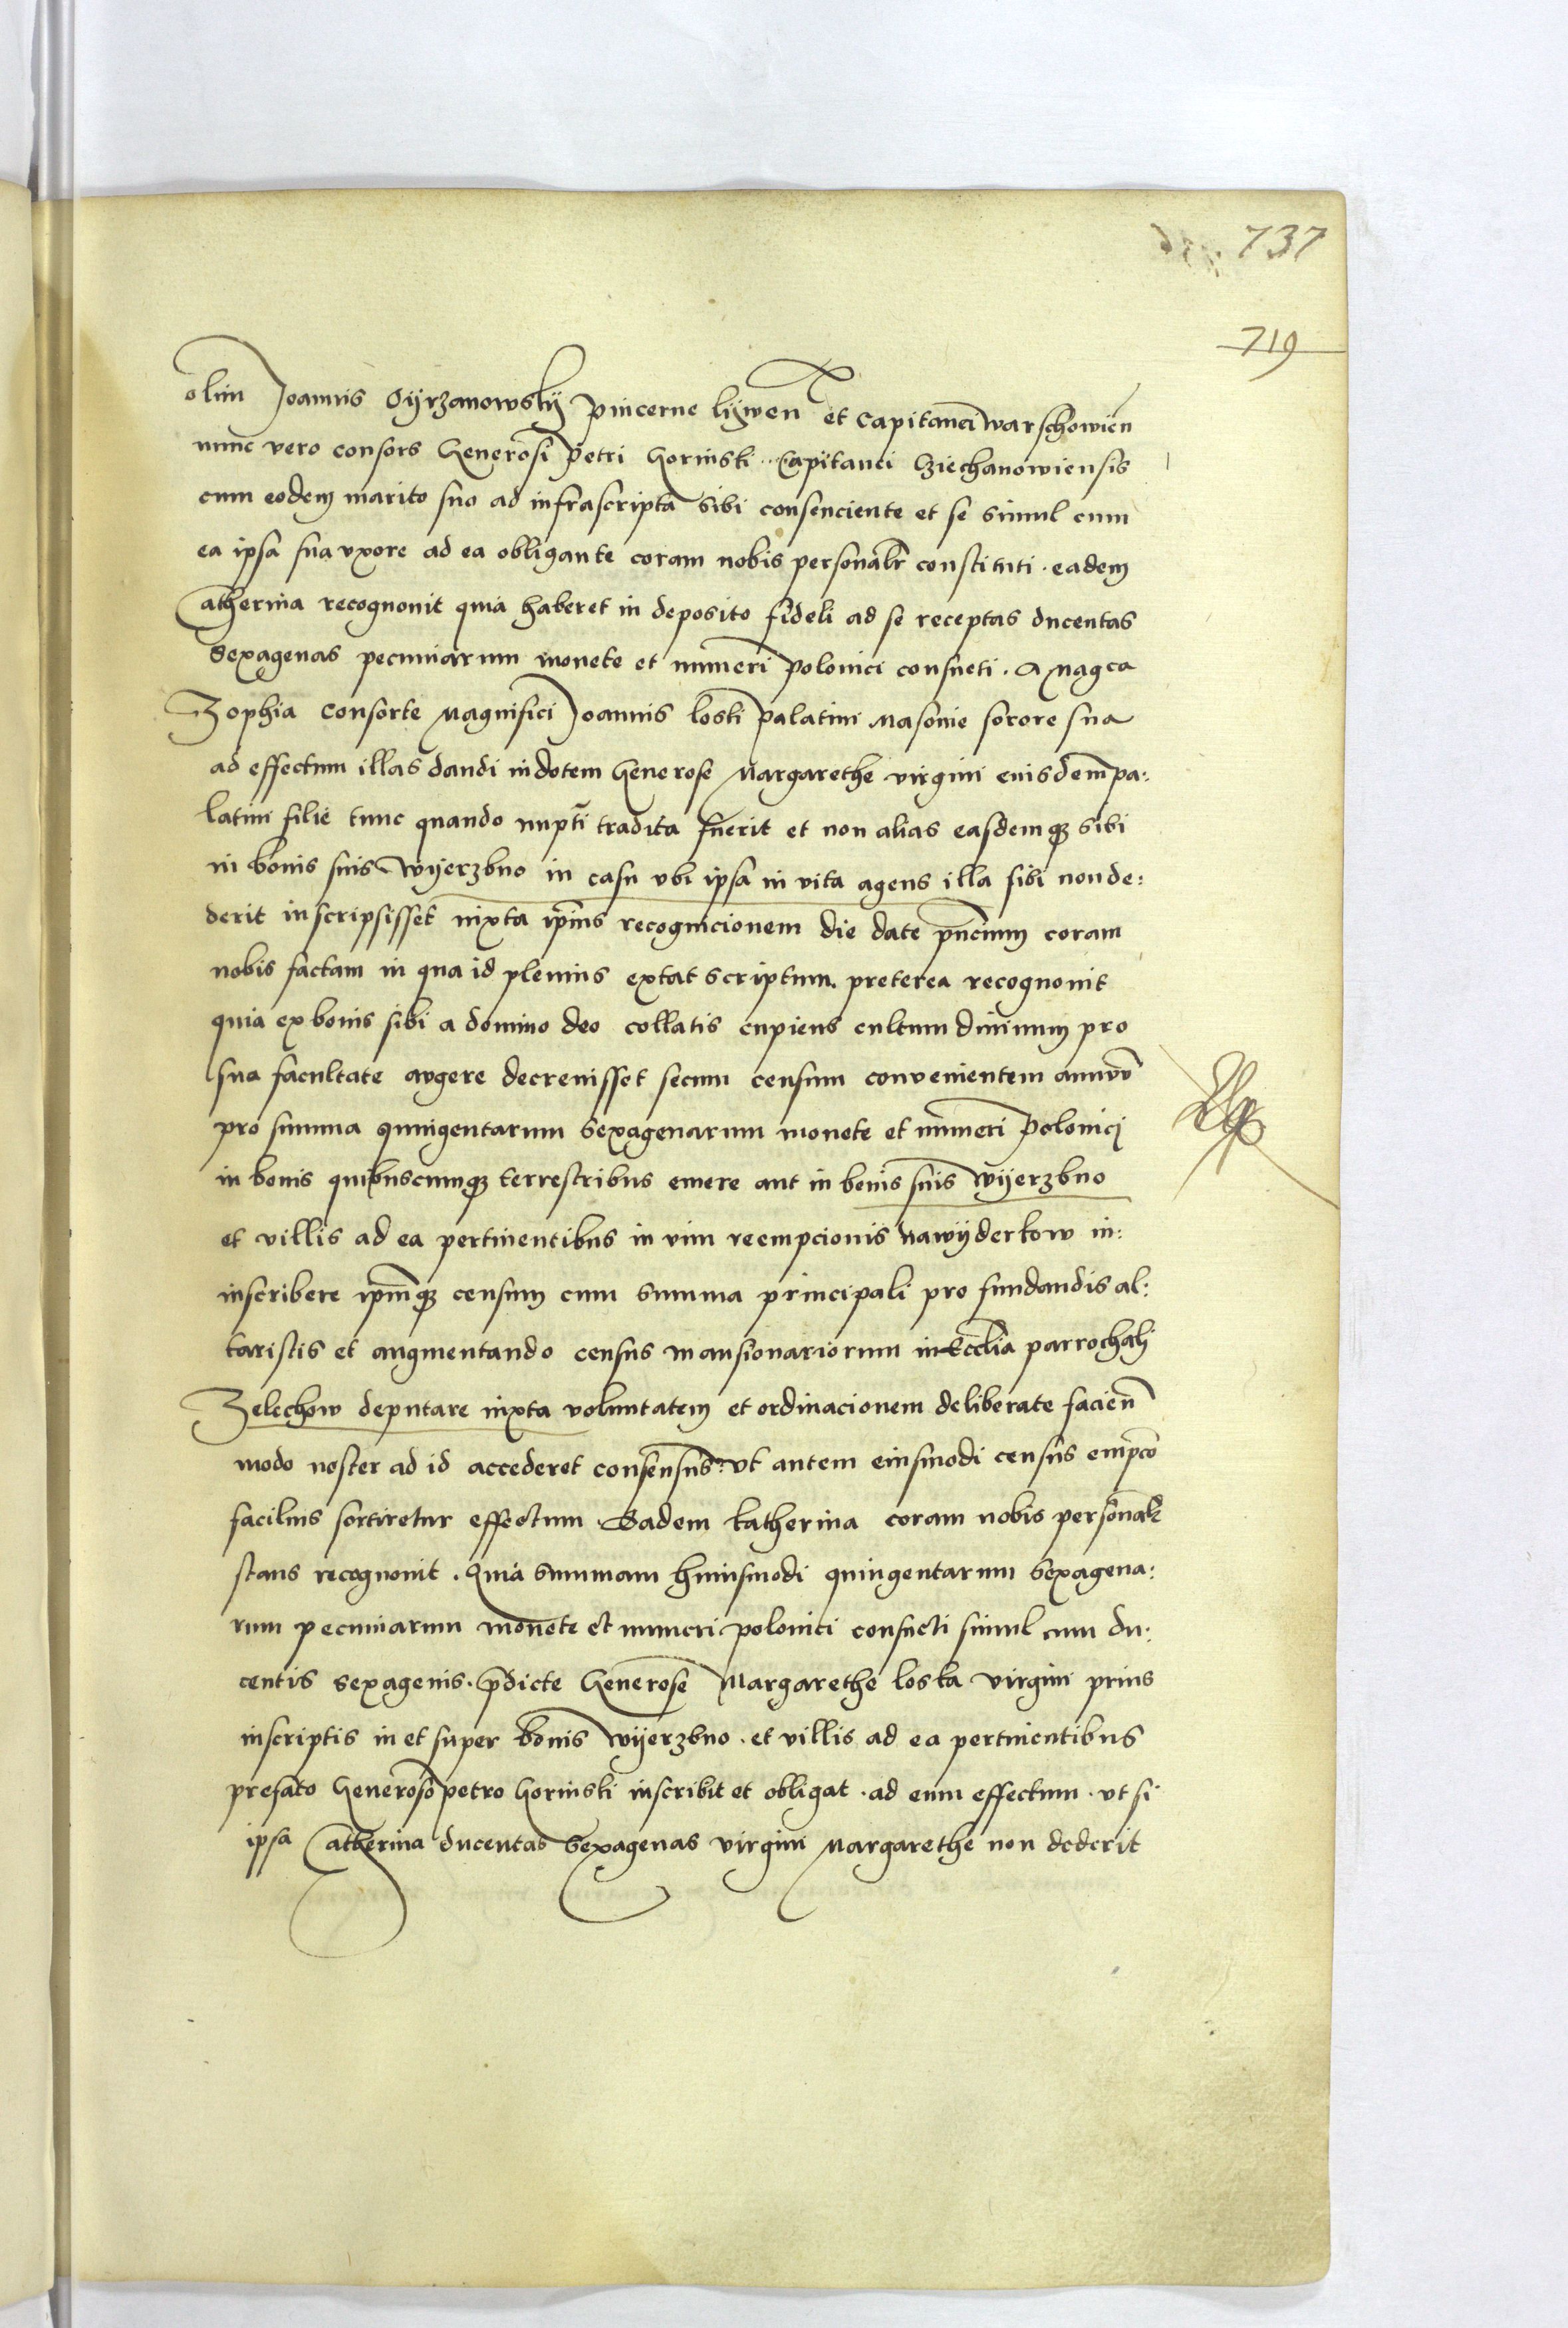 737
719
olim Joannis Oyrzanowsky pincerne liwen et Capitanei warschowien
nunc vero consors Generosi petri Gorinski .. Capitanei Cziechanowiensis
cum eodem marito suo ad infrascripta sibi consenciente et se simul cum
ea ipsa sua uxore ad ea obligante coram nobis personalr constituti . eadem
Catherina recognovit quia haberet in deposito fideli ad se receptas ducentas
Sexagenas pecuniarum monete et numeri polonici consueti . A Magca
Zophia consorte Magnifici Joannis loski palatini Masovie sorore sua
ad effectum illas dandi in dotem Generose Margarethe virgini eiusdem pa:
latini filie tunc quando nupti tradita fuerit et non alias easdemq sibi
in bonis suis wyerzbno in casu ubi ipsa in vita agens illa sibi non de:
derit inscripsisset iuxta ipius recognicionem die date pncium coram
nobis factam in qua id plenius extat scriptum. preterea recognovit
quia ex bonis sibi a domino deo collatis cupiens cultum divinum pro
sua facultate augere decrevisset secum censum convenientem annuū
pro summa quingentarum Sexagenarum monete et numeri polonici
in bonis quibuscumq terrestribus emere aut in bonis suis wyerzbno
et villis ad ea pertinentibus in vim reempcionis nawyderkow in:
inscribere ipmq censum cum summa principali pro fundandis al:
taristis et augmentando census mansionariorum in Ecclia parrochali
Zelechow deputare iuxta voluntatem et ordinacionem deliberate facien
modo noster ad id accederet consensus: Ut autem eiusmodi census empco
facilius sortiretur effectum . Eadem katherina coram nobis personalr
stans recognovit . Quia summam huiusmodi quingentarum Sexagena:
rum pecuniarum monete et numeri polonici consueti simul cum du:
centis sexagenis . pdicte Generose Margarethe loska virgini prius
inscriptis in et super bonis wyerzbno . et villis ad ea pertinentibus
prefato Generoso petro Gorinski inscribit et obligat . ad eum effectum . ut si
ipsa Catherina ducentas Sexagenas virgini Margarethe non dederit